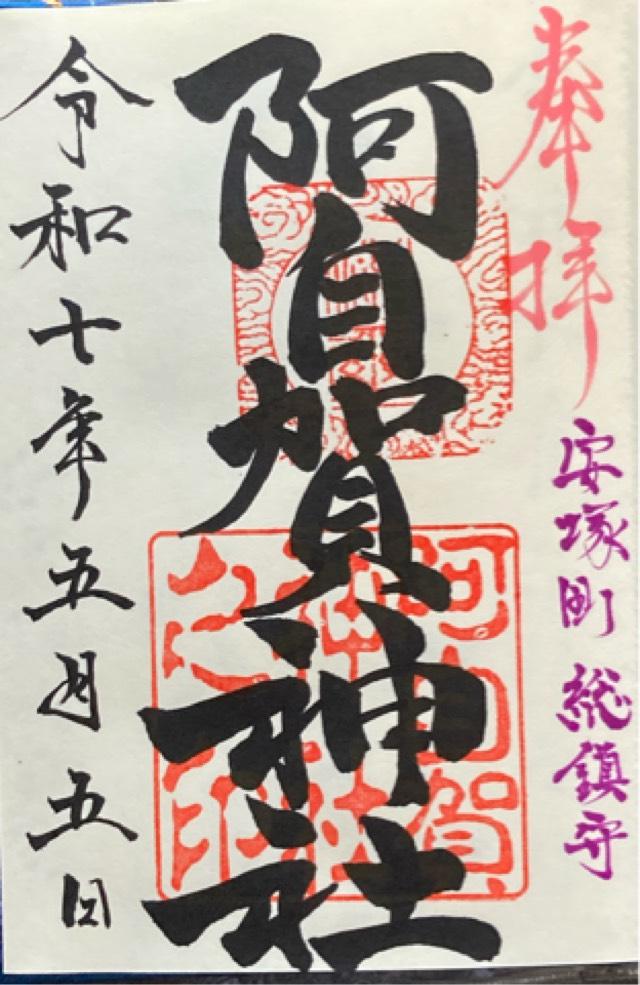 奉拝
安塚町 総鎮守
阿自賀神社
令和七年五月五日
阿自賀
神社
之印